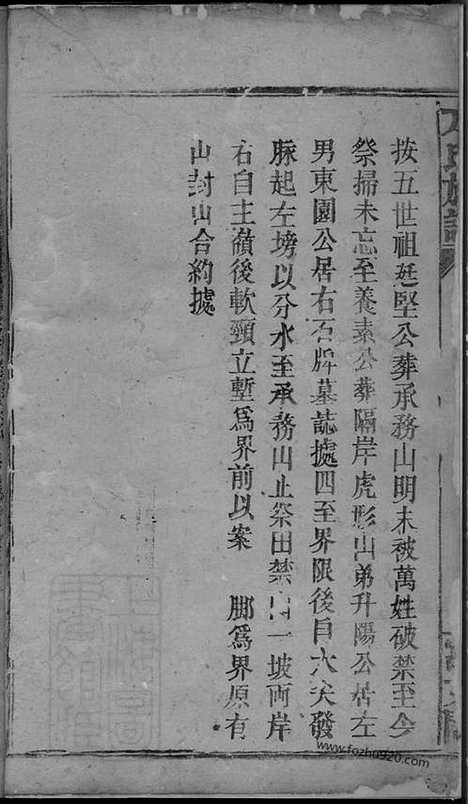 按五世祖廷堅公葬承務山明末被萬姓破禁至今
祭掃未忘至養素公葬隔岸虎形山弟升陽公居左
男東園公居右石牌墓誌據四至界限後自大尖發
脉起左塝以分水至承務山止祭田禁山一坡両岸
右自主嶺後軟頸立塹為界前以案 脚為界原有
山封山合約據
氏族譜
www.fozhu920.com